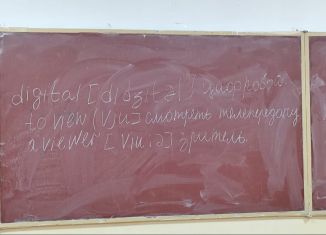 digital [didʒitəl] цифровой
to view [vju:] смотреть телепередачу
a viewer [vju:ə] зритель